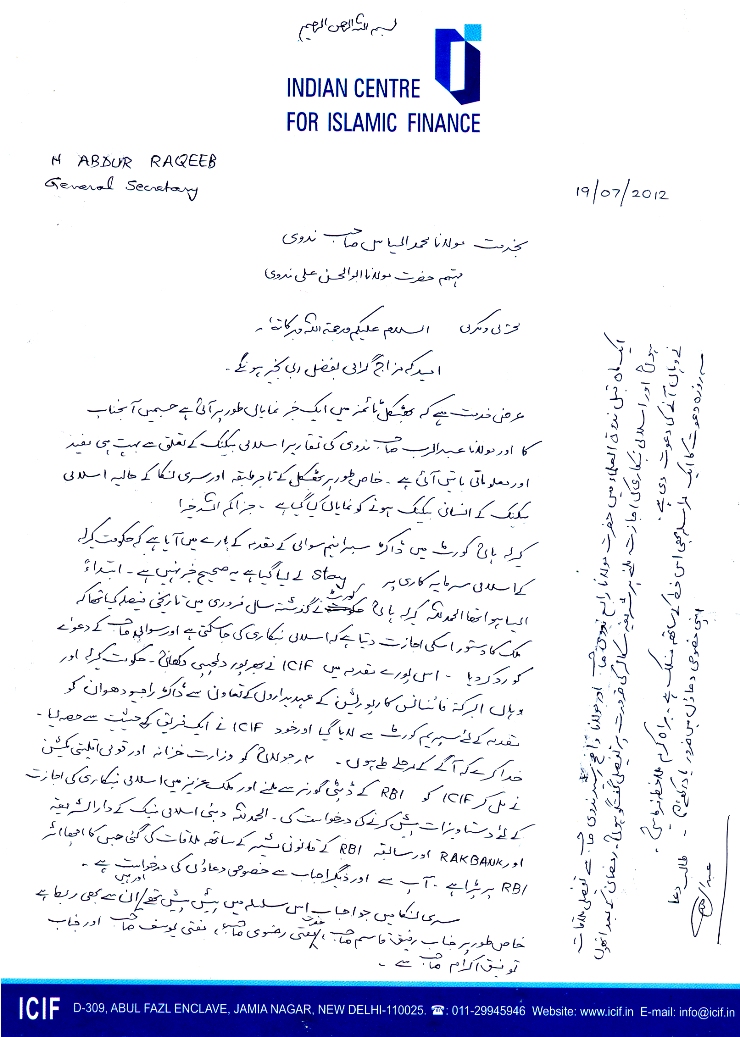 بسم اللہ الرحمن الرحیم
INDIAN CENTRE
FOR ISLAMIC FINANCE
H ABDUR RAQEEB
General Secretary
19/07/2012
بخدمت مولانا محمد الیاس صاحب ندوی
مہتمم حضرت مولانا ابوالحسن علی ندوی
محترمی و مکرمی السلام علیکم ورحمۃ اللہ وبرکاتہ،
امید کہ مزاج گرامی بفضل ربی بخیر ہونگے۔
عرض خدمت ہے کہ بھٹکل ٹائمز میں ایک خبر نمایاں طور پر آئی ہے جسمیں آنجناب
کا اور مولانا عبدالرب صاحب ندوی کی تقاریر اسلامی بینکنگ کے تعلق سے بہت ہی مفید
اور معلوماتی باتیں آئی ہے۔ خاص طور پر بھٹکل کے تاجر طبقہ اور سری لنکا کے حالیہ اسلامی
بینکنگ کے انسانی بینکنگ ہونے کو نمایاں کیا گیا ہے۔ جزاکم اللہ خیرا
کیرلہ ہائی کورٹ میں ڈاکٹر سبرامنیم سوامی کے مقدمہ کے بارے میں آیا ہے کہ حکومت کیرلہ
کے اسلامی سرمایہ کاری پر Stay لے لیا گیا ہے یہ صحیح خبر نہیں ہے۔ ابتداءً
ایسا ہوا تھا الحمدللہ کیرلہ ہائی کورٹ نے گذشتہ سال فروری میں تاریخی فیصلہ کیا تھا کہ
ملک کا دستور اسکی اجازت دیتا ہے کہ اسلامی بنکاری کی جاسکتی ہے اور سوامی صاحب کے دعوے
کو رد کردیا۔ اس پورے مقدمہ میں ICIF نے بھرپور دلچسپی دکھائی۔ حکومت کیرلہ اور
وہاں البرکۃ فائنانس کارپوریشن کے عہدیداروں کے تعاون سے ڈاکٹر راجیو دھوان کو
مقدمہ کے لئے سپریم کورٹ سے لایا گیا اور خود ICIF نے ایک فریق کی حیثیت سے حصہ لیا۔
خدا کرے کہ آگے کے مرحلے طے ہوں۔ جولائی کو وزارت خزانہ اور قومی اقلیتی کمیشن
نے مل کر ICIF کو RBI کے ڈپٹی گورنر سے ملنے اور ملک عزیز میں اسلامی بنکاری کی اجازت
کے لئے دستاویزات پیش کرنے کی درخواست کی۔ الحمدللہ دبئی اسلامی بینک کے دارالشریعہ
اور RAKBANK اور سابقہ RBI کے قانونی مشیر کے ساتھ ملاقات کی گئی جس کا اچھا اثر
RBI پر پڑا ہے۔ آپ سے اور دیگر احباب سے خصوصی دعاؤں کی درخواست ہے۔
سری لنکا میں جو احباب اس سلسلہ میں پیش پیش تھے اور ہیں ان سے بھی ربط ہے
خاص طور پر جناب رفیق قاسم صاحب، مفتی رضوی صاحب، مفتی یوسف صاحب اور جناب
توفیق اکرام صاحب سے۔
ایک ماہ قبل ندوۃ العلماء میں حضرت مولانا رابع ندوی صاحب اور مولانا واضح رشید ندوی صاحب سے تفصیلی ملاقات
ہوئی اور اسلامی بنکاری کی اجازت ملنے پر شریعہ اسکالر کی ضرورت پر تفصیلی گفتگو ہوئی۔ رمضان کے بعد انہوں
نے وہاں آنے کی دعوت دی ہے۔
سہ روزہ دعوت کا ایک مراسلہ بھی اس خط کے ساتھ منسلک ہے۔ براہ کرم ملاحظہ فرمائیں۔
اپنی خصوصی دعاؤں میں ضرور یاد رکھئے۔
طالب دعا
ICIF D-309, ABUL FAZL ENCLAVE, JAMIA NAGAR, NEW DELHI-110025. ☎: 011-29945946 Website: www.icif.in E-mail: info@icif.in